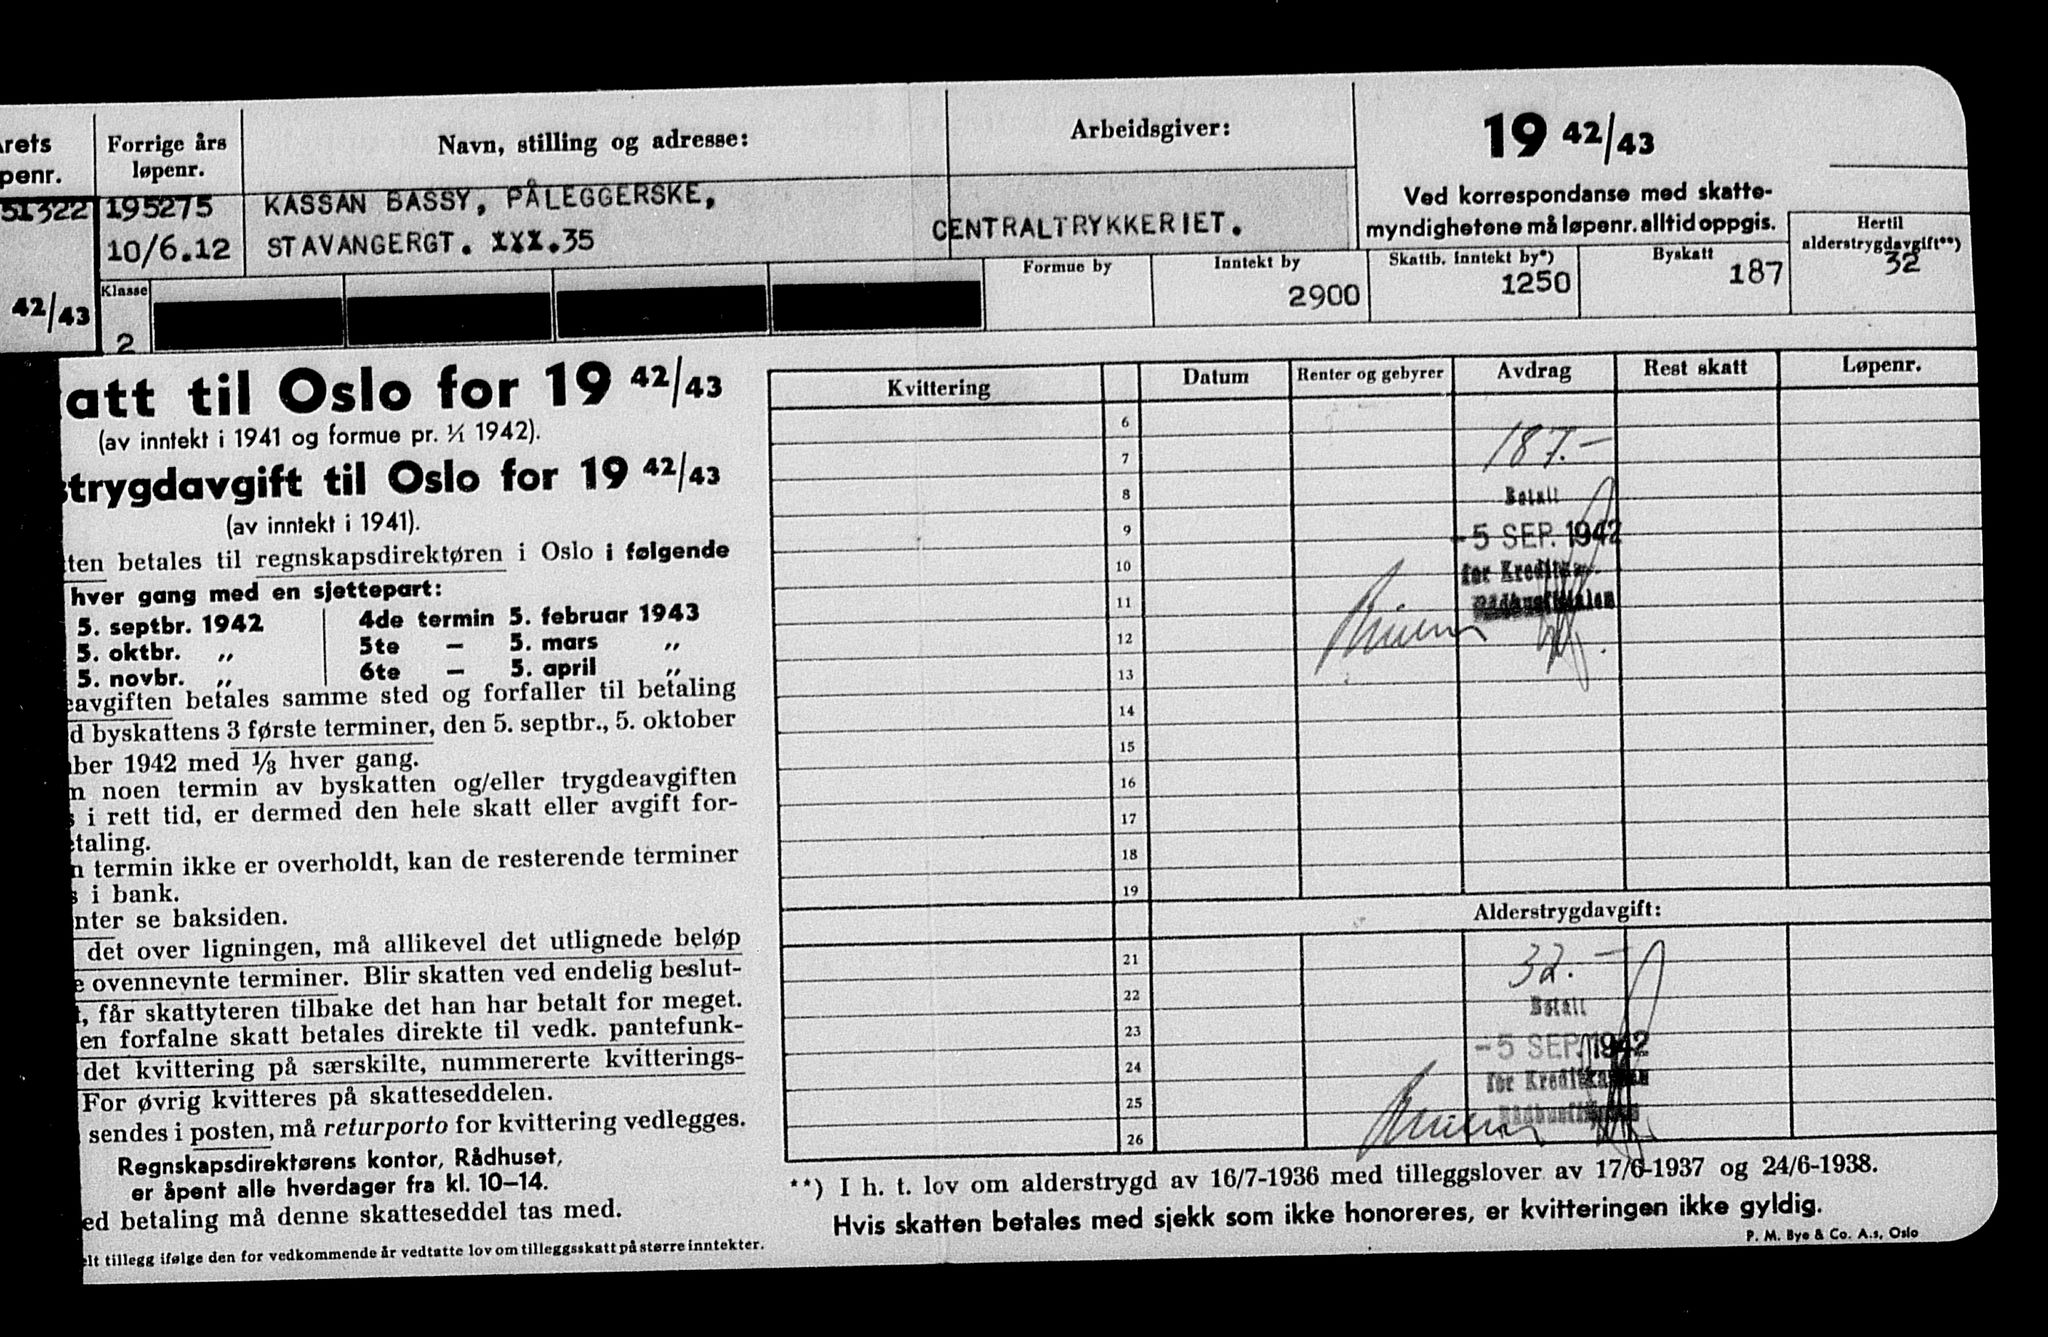 rets
penr.
Forrige års
løpenr.
Navn, stilling og adresse:
Arbeidsgiver:
19 42/43
Ved korrespondanse med skatte-
myndighetene må løpenr. alltid oppgis.
51322
195275
KASSAN BASSY, PÅLEGGERSKE,
CENTRALTRYKKERIET.
10/6.12
STAVANGERGT. XXX.35
42/43
Klasse
2
Formue by
Inntekt by
2900
Skattb. inntekt by*)
1250
Byskatt
187
Hertil
alderstrygdavgift**)
32
att til Oslo for 19 42/43
(av inntekt i 1941 og formue pr. 1/1 1942).
strygdavgift til Oslo for 19 42/43
(av inntekt i 1941).
ten betales til regnskapsdirektøren i Oslo i følgende
hver gang med en sjettepart:
5. septbr. 1942 4de termin 5. februar 1943
5. oktbr. „ 5te — 5. mars „
5. novbr. „ 6te — 5. april „
eavgiften betales samme sted og forfaller til betaling
d byskattens 3 første terminer, den 5. septbr., 5. oktober
ber 1942 med 1/3 hver gang.
n noen termin av byskatten og/eller trygdeavgiften
s i rett tid, er dermed den hele skatt eller avgift for-
taling.
n termin ikke er overholdt, kan de resterende terminer
s i bank.
nter se baksiden.
det over ligningen, må allikevel det utlignede beløp
e ovennevnte terminer. Blir skatten ved endelig beslut-
t, får skattyteren tilbake det han har betalt for meget.
en forfalne skatt betales direkte til vedk. pantefunk-
det kvittering på særskilte, nummererte kvitterings-
For øvrig kvitteres på skatteseddelen.
sendes i posten, må returporto for kvittering vedlegges.
Regnskapsdirektørens kontor, Rådhuset,
er åpent alle hverdager fra kl. 10–14.
ed betaling må denne skatteseddel tas med.
elt tillegg ifølge den for vedkommende år vedtatte lov om tilleggsskatt på større inntekter.
Kvittering
Datum
Renter og gebyrer
Avdrag
Rest skatt
Løpenr.
6
7
187.–
8
Betalt
9
-5 SEP. 1942
10
for Kreditkassen
11
Rådhusfilialen
12
13
14
15
16
17
18
19
Alderstrygdavgift:
21
32.–
22
Betalt
23
-5 SEP. 1942
24
for Kreditkassen
25
Rådhusfilialen
26
**) I h. t. lov om alderstrygd av 16/7-1936 med tilleggslover av 17/6-1937 og 24/6-1938.
Hvis skatten betales med sjekk som ikke honoreres, er kvitteringen ikke gyldig.
P. M. Bye & Co. A.s, Oslo